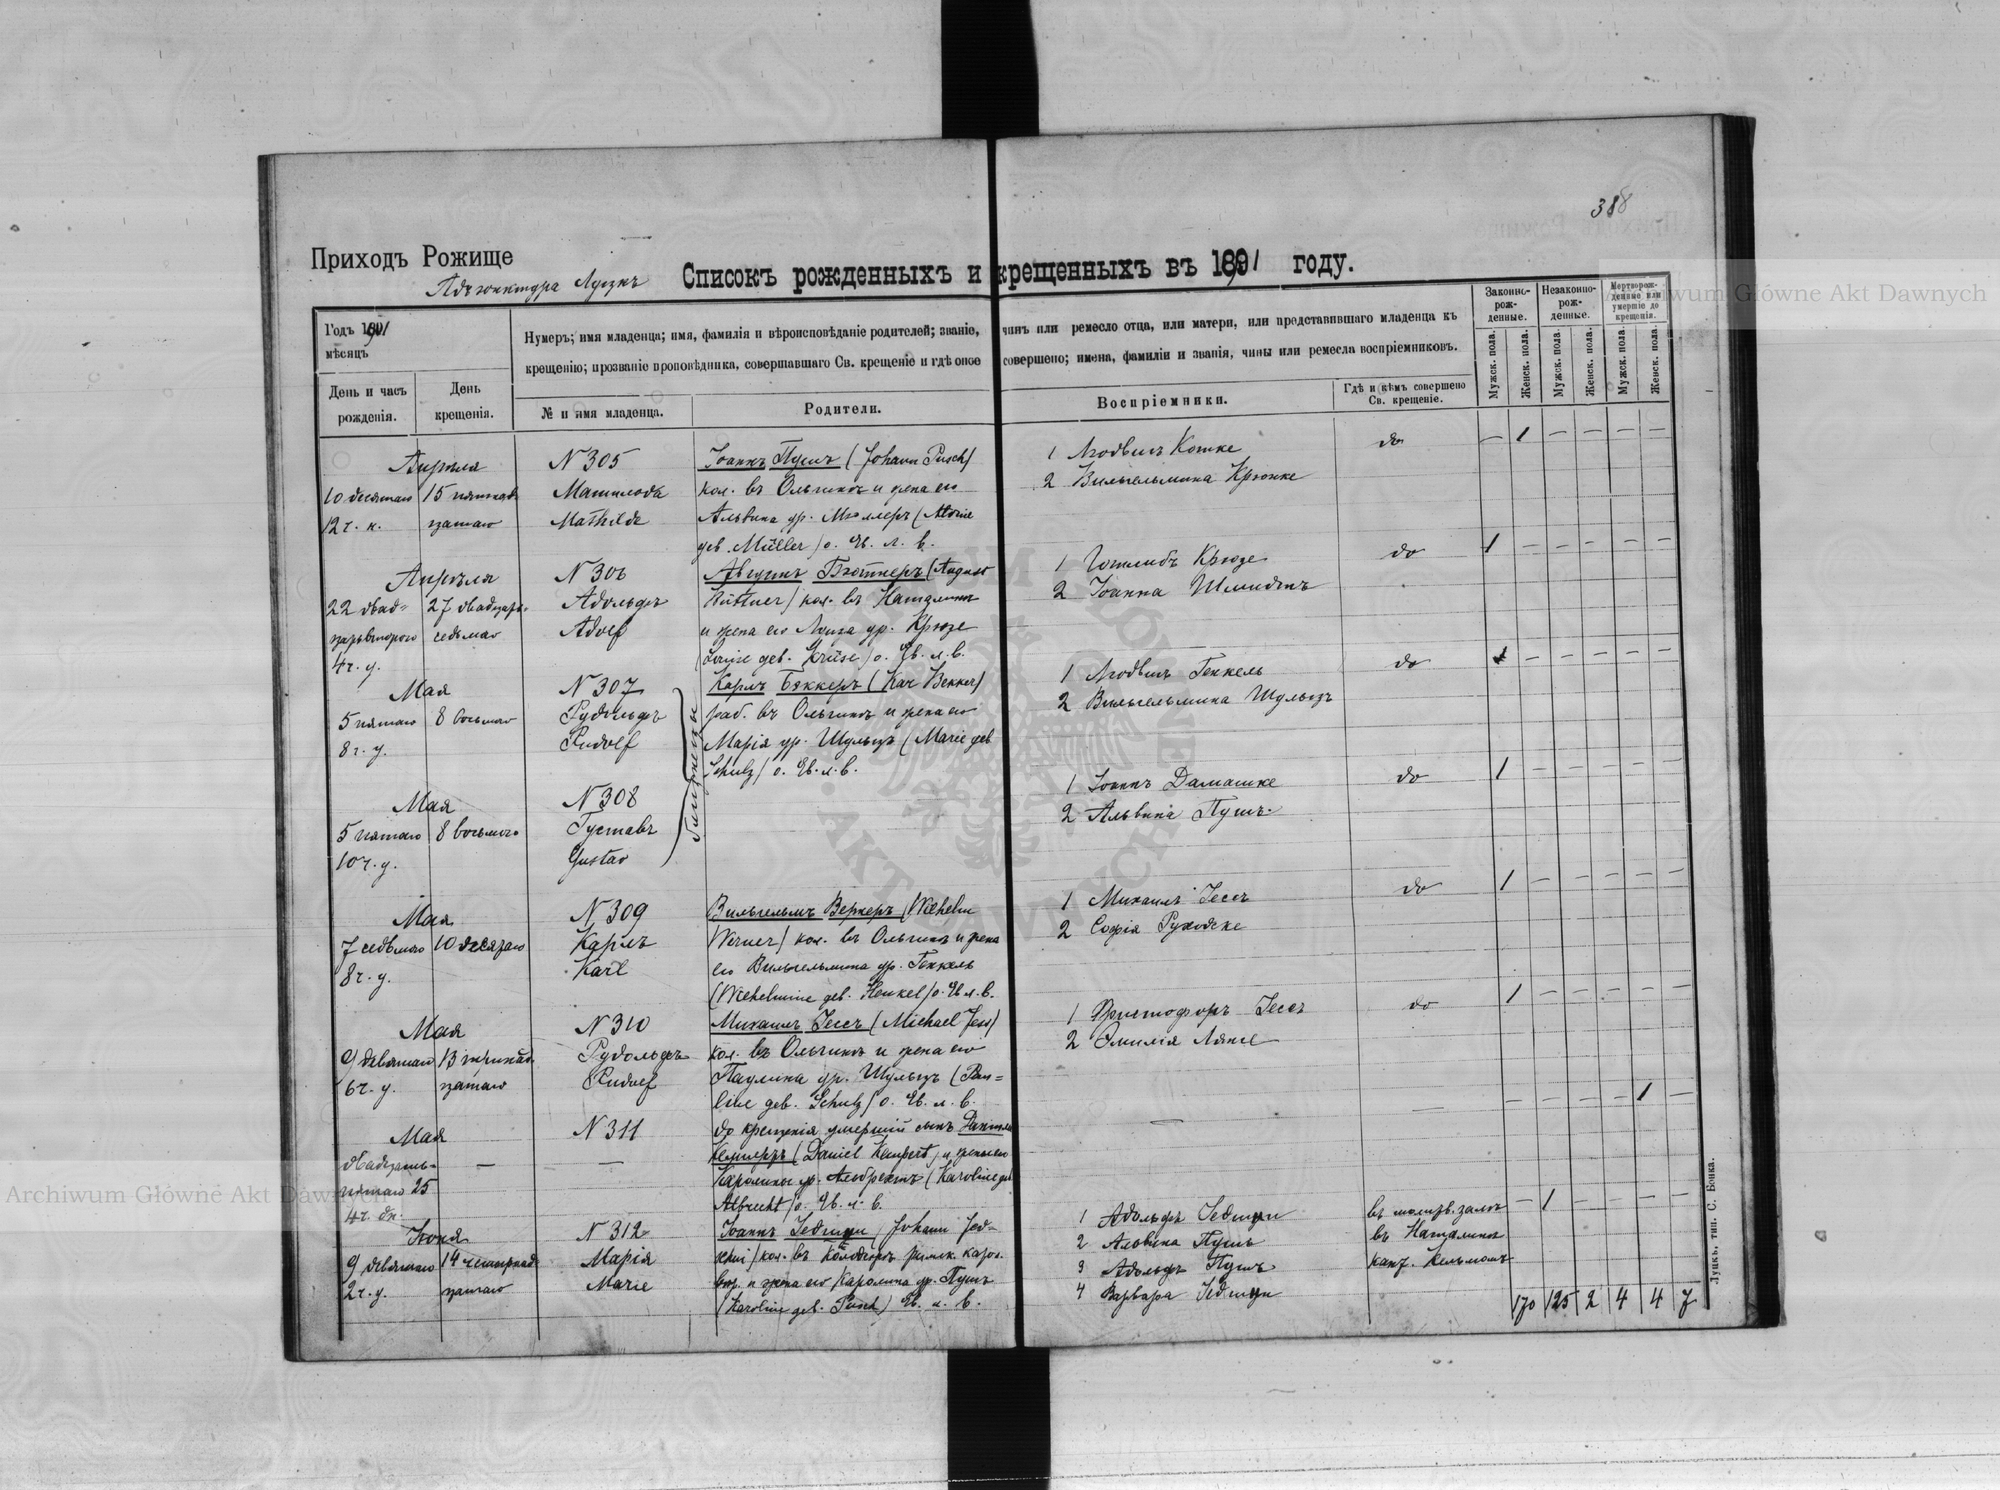 388
Приходъ Рожище
Адъюнктура Луцкъ
Списокъ рожденныхъ и крещенныхъ въ 1891 году.
Годъ 1891
мѣсяцъ
День и часъ
рожденія.
День
крещенія.
Нумеръ; имя младенца; имя, фамилія и вѣроисповѣданіе родителей; званіе, чинъ или ремесло отца, или матери, или представившаго младенца къ
крещенію; прозваніе проповѣдника, совершавшаго Св. крещеніе и гдѣ оное совершено; имена, фамиліи и званія, чины или ремесла воспріемниковъ.
№ и имя младенца.
Родители.
Воспріемники.
Гдѣ и кѣмъ совершено
Св. крещеніе.
Законно-
рож-
денные.
Незаконно-
рож-
денные.
Мертворож-
денные или
умершіе до
крещенія.
Мужск. пола.
Женск. пола.
Мужск. пола.
Женск. пола.
Мужск. пола.
Женск. пола.
Апрѣля
10 десятаго
12 ч. н.
15 пятнад
цатаго
N 305
Матильда
Mathilde
Іоаннъ Пушъ (Johann Pusch)
кол. въ Ольгинѣ и жена его
Альвина ур. Мюллеръ (Alvine
geb. Müller) о. Ев. л. в.
1 Людвигъ Котке
2 Вильгельмина Крюнке
do
— 1 — — — —
Апрѣля
22 двад-
цать второго
4 ч. у.
27 двадцать
седьмаго
N 306
Адольфъ
Adolf
Августъ Бютнеръ (August
Büttner) кол. въ Наталинѣ
и жена его Луиза ур. Крюзе
(Louise geb. Krüse) о. Ев. л. в.
1 Готлибъ Крюзе
2 Іоанна Шмидтъ
do
1 — — — — —
Мая
5 пятаго
8 ч. у.
8 восьмаго
N 307
Рудольфъ
Rudolf
близнецы
Карлъ Беккеръ (Karl Bekker)
раб. въ Ольгинѣ и жена его
Марія ур. Шульцъ (Marie geb
Schulz) о. Ев. л. в.
1 Людвигъ Генкель
2 Вильгельмина Шульцъ
do
1 — — — — —
Мая
5 пятаго
10 ч. у.
8 восьмаго
N 308
Густавъ
Gustav
1 Іоаннъ Дамашке
2 Альвина Пушъ
do
1 — — — — —
Мая
7 седьмаго
8 ч. у.
10 десятаго
N 309
Карлъ
Karl
Вильгельмъ Вернеръ (Wilhelm
Werner) кол. въ Ольгинѣ и жена
его Вильгельмина ур. Генкель
(Wilhelmine geb. Henkel) о. Ев. л. в.
1 Михаилъ Іессъ
2 Софія
do
1 — — — — —
Мая
9 девятаго
6 ч. у.
13 тринад
цатаго
N 310
Рудольфъ
Rudolf
Михаилъ Іессъ (Michael Jess)
кол. въ Ольгинѣ и жена его
Паулина ур. Шульцъ (Pau=
line geb. Schulz) о. Ев. л. в.
1 Христофоръ Іессъ
2 Эмилія
do
1 — — — — —
Мая
двадцать-
пятаго 25
4 ч. дн.
—
N 311
—
до крещенія умершій сынъ Даніила
Кемпертъ (Daniel Kempert) и жены его
Каролины ур. Альбрехтъ (Karoline geb
Albrecht) о. Ев. л. в.
—
—
— — — — 1 —
Іюня
9 девятаго
2 ч. у.
14 четырнад
цатаго
N 312
Марія
Marie
Іоаннъ (Johann
кол. въ римск. катол.
вѣр. и жена его Каролина ур. Пушъ
(Karoline geb. Pusch) Ев. л. в.
1 Адольфъ
2 Альвина Пушъ
3 Адольфъ Пушъ
4 Варвара
въ молитв. залѣ
въ Наталинѣ
— 1 — — — —
170 125 2 4 4 7
Луцкъ, тип. С. Бонка.
Archiwum Główne Akt Dawnych
Archiwum Główne Akt Dawnych